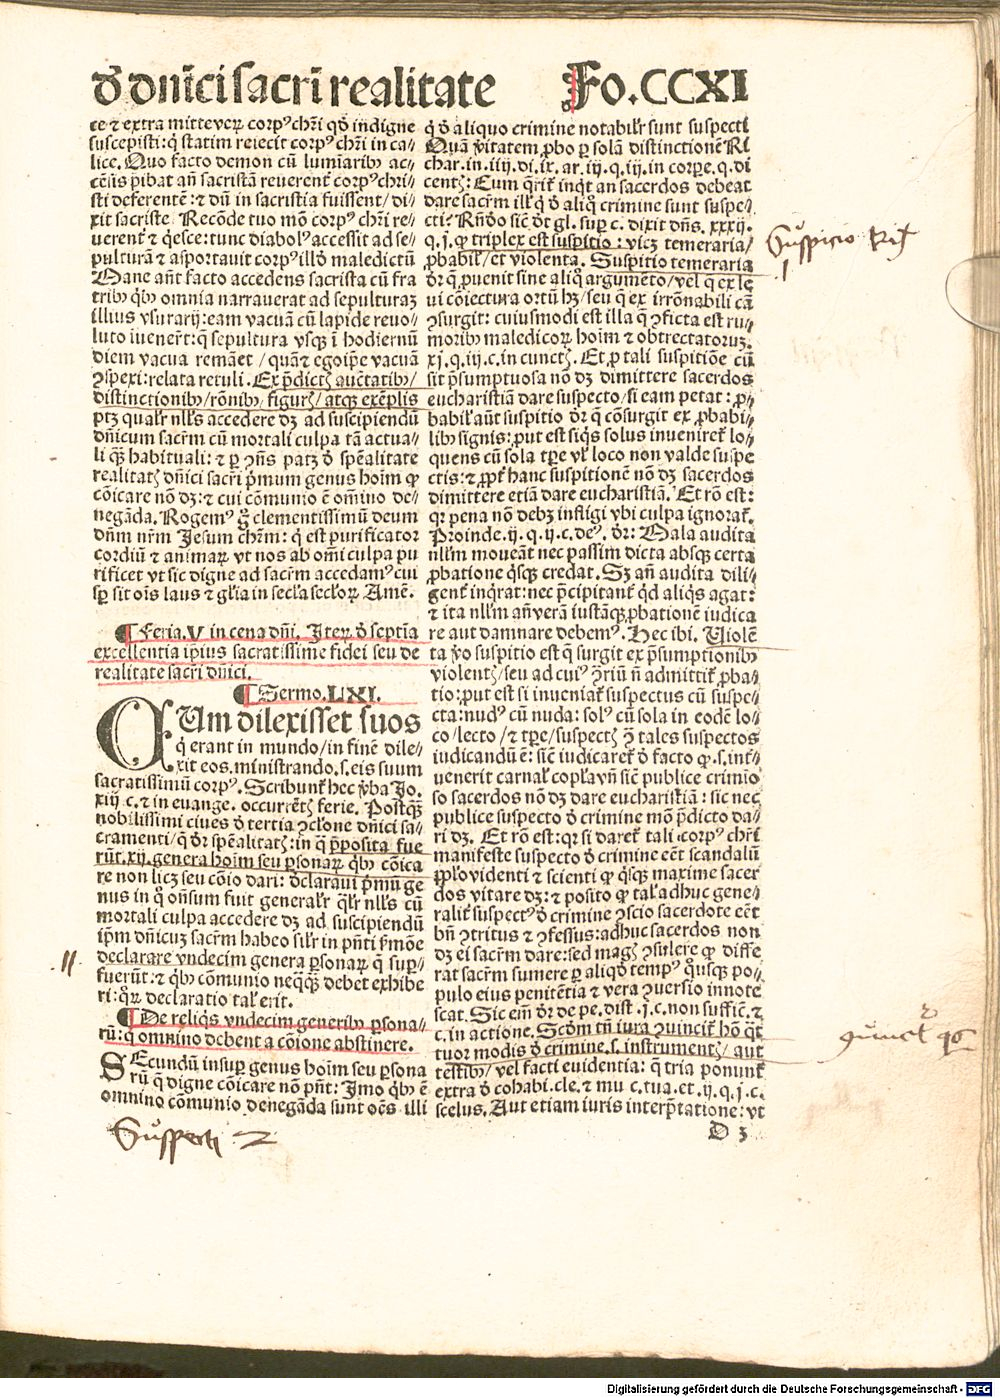 ꝺ dn̄ici sacri realitate Fo. CCXI
te ⁊ extra mitteverꝭ corpꝰ chr̄i qḋ indigne
suscepisti: q̄ statim reiecit corpꝰ chr̄i in ca⸗
lice. Quo facto demon cū luminaribꝰ ac⸗
cēsis p̄ibat an̄ sacristā reuerent̄ corpꝰ chri⸗
sti deferentē: ⁊ dū in sacristia fuissent/di⸗
xit sacriste Recōde tuo mō corpꝰ chr̄i re⸗
uerent̄ ⁊ q̇esce: tunc diabolꝰ accessit ad se⸗
pulturā ⁊ asportauit corpꝰ illꝰ maledictū
Mane aūt facto accedens sacrista cū fra
tribꝰ q̇bꝰ omnia narrauerat ad sepulturaꝫ
illius vsurarij: eam vacuā cū lapide reuo⸗
luto iuenert̄: q̄ sepultura vsqꝫ ī hodiernū
diem vacua remāet/quā ⁊ egoip̄e vacuā
ꝯspexi: relata retuli. Ex p̄dictꝭ auctatibꝰ/
distinctionibꝰ/rōnibꝰ/figurꝭ/atqꝫ exēplis
ptꝫ qualr̄ nlłs accedere dꝫ ad suscipiendū
dn̄icum sacrm̄ cū mortali culpa tā actua⸗
li qꝫ̄ habituali: ⁊ ꝑ ꝯn̄s patꝫ ꝺ sp̄ealitate
realitatꝭ dn̄ici sacri p̄mum genus hoīm ꝙ
cōicare nō dꝫ: ⁊ cui cōmunio ē om̄ino de⸗
negāda. Rogemꝰ g̊ clementissimū deum
dn̄m nr̄m Jesum chr̄m: q̇ est purificator
cordiū ⁊ animarꝭ vt nos ab om̄i culpa pu
rificet vt sic digne ad sacrm̄ accedamꝰ cui
sꝑ sit oīs laus ⁊ glīa in secl̄a seclorꝭ Amē.
¶ Feria. V in cena dn̄i. Iterꝭ ꝺ septīa
excellentia ip̄ius sacratissime fidei seu de
realitate sacri dn̄ici.
¶ Sermo. LXI.
CUm dilexisset suos
q̇ erant in mundo/in finē dile⸗
xit eos. ministrando. s. eis suum
sacratissimū corpꝰ. Scribunt̄ hec v̄ba Jo.
xiij c. ⁊ in euange. occurrētꝭ ferie. Postqꝫ̄
nobilissimi ciues ꝺ tertia ꝯclone dn̄ici sa⸗
cramenti/q̄ dr̄ sp̄ealitatꝭ: in q̄ p̄posita fue
rūt. xij. genera hoīm seu ꝑsonarꝭ q̇bꝰ cōica
re non licꝫ seu cōio dari: ꝺclaraui p̄mū ge
nus in q̊ on̄sum fuit generalr̄ qłr nlłs cū
mortali culpa accedere dꝫ ad suscipiendū
ip̄m dn̄icuꝫ sacrm̄ habeo silr̄ in pn̄ti ẜmōe
declarare vndecim genera ꝑsonarꝭ q̄ suꝑ⸗
fuerūt: ⁊ q̇bꝰ cōmunio neqꝫ̄qꝫ̄ debet exhibe
ri: q̊rꝭ declaratio tal̄ erit.
¶ De reliq̇s vndecim generibꝰ ꝑsona⸗
rū: q̄ omnino debent a cōione abstinere.
SEcundū insuꝑ genus hoīm seu ꝑsona
rū q̇ digne cōicare nō pn̄t: Imo q̇bꝰ ē
omnino cōmunio denegāda sunt oēs illi
q̇ ꝺ aliquo crimine notabilr̄ sunt suspecti
Quā v̄itatem ꝓbo ꝑ solā distinctionē Ri
char. in. iiij. di. ix. ar. iij. q. iij. in corꝑe. q. di
centꝭ: Cum q̄rit̄ inq̇t an sacerdos debeat
dare sacrm̄ illꝭ q̇ ꝺ aliq̊ crimine sunt suspe⸗
cti? Rn̄do sic̄ dt̄ gl. suꝑ c. dixit dn̄s. xxxij.
q. j. ꝙ triplex est suspitio: vicꝫ temeraria/
ꝓbabił/et violenta. Suspitio temeraria
dr̄ q̄ ꝓuenit sine aliq̊ argumēto/vel q̄ ex le
ui cōiectura ortū hꝫ/seu q̄ ex irrōnabili cā
ꝯsurgit: cuiusmodi est illa q̄ ꝯficta est ru⸗
moribꝰ maledicorꝭ hoīm ⁊ obtrectatoruꝫ.
xj. q. iij. c. in cunctꝭ. Et ꝓ tali suspitiōe cū
sit p̄sumptuosa nō dꝫ dimittere sacerdos
eucharistiā dare suspecto/si eam petat: ꝓ⸗
babił aūt suspitio dr̄ q̄ cōsurgit ex ꝓbabi⸗
libꝰ signis: ꝓut est siq̇s solus inueniret̄ lo⸗
quens cū sola tꝑe vł loco non valde suspe
ctis: ⁊ ꝓpt̄ hanc suspitionē nō dꝫ sacerdos
dimittere etiā dare eucharistiā. Et rō est:
qꝛ pena nō debꝫ infligi vbi culpa ignorat̄.
Proinde. ij. q. ij. c. deꝰ. dr̄: Mala audita
nllm̄ moueāt nec passim dicta absqꝫ certa
ꝓbatione q̇sqꝫ credat. Sꝫ an̄ audita dili⸗
gent̄ inq̇rat: nec p̄cipitant̄ qḋ aliq̇s agat:
⁊ ita nllm̄ an̄ verā iustāqꝫ ꝓbationē iudica
re aut damnare debemꝰ. Hec ibi. Violē
ta v̊o suspitio est q̄ surgit ex p̄sumptionibꝰ
violentꝭ/seu ad cuiꝰ ꝯr̄iū n̄ admittit̄ ꝓba⸗
tio: ꝓut est si inueniat̄ suspectus cū suspe⸗
cta: nudꝰ cū nuda: solꝰ cū sola in eodē lo⸗
co/lecto/⁊ tꝑe/suspectꝭ ꝫ̄ tales suspectos
iudicandū ē: sic̄ iudicaret̄ ꝺ facto ꝙ. s. int̄⸗
uenerit carnal̄ copl̄a vn̄ sic̄ publice crimīo
so sacerdos nō dꝫ dare eucharistiā: sic nec
publice suspecto ꝺ crimine mō p̄dicto da⸗
ri dꝫ. Et rō est: qꝛ si daret̄ tali corpꝰ chr̄i
manifeste suspecto ꝺ crimine eēt scandalū
pplō videnti ⁊ scienti ꝙ q̇sqꝫ maxime sacer
dos vitare dꝫ: ⁊ posito ꝙ tal̄ adhuc gene⸗
ralit̄ suspectꝰ ꝺ crimine ꝯscio sacerdote eēt
bn̄ ꝯtritus ⁊ ꝯfessus: adhuc sacerdos non
dꝫ ei sacrm̄ dare: sed magꝭ ꝯsulere ꝙ diffe
rat sacrm̄ sumere ꝑ aliqḋ tempꝰ q̊usqꝫ po⸗
pulo eius penitētia ⁊ vera ꝯuersio innote
scat. Sic em̄ dr̄ de pe. dist. j. c. non suffic̄. ⁊
c. in actione. Scdm̄ tn̄ iura ꝯuincit̄ hō q̄t
tuor modis ꝺ crimine. s. instrumentꝭ/aut
testibꝰ/vel facti euidentia: q̄ tria ponunt̄
extra ꝺ cohabi. cle. ⁊ mu c. tua. et. ij. q. j. c.
scelus. Aut etiam iuris interp̄tatione: vt
D 3
Suspicio
1
11
Suspecti 2